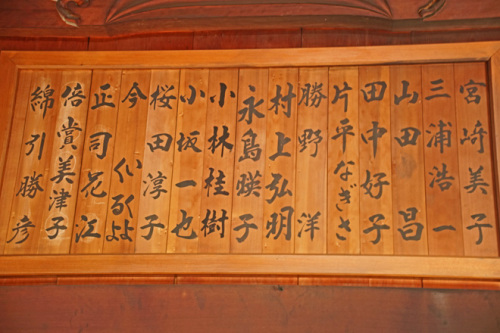 宮崎美子
三浦浩一
山田昌
田中好子
片平なぎさ
勝野洋
村上弘明
永島暎子
小林桂樹
小坂一也
桜田淳子
今いくよ
くるよ
正司花江
倍賞美津子
綿引勝彦